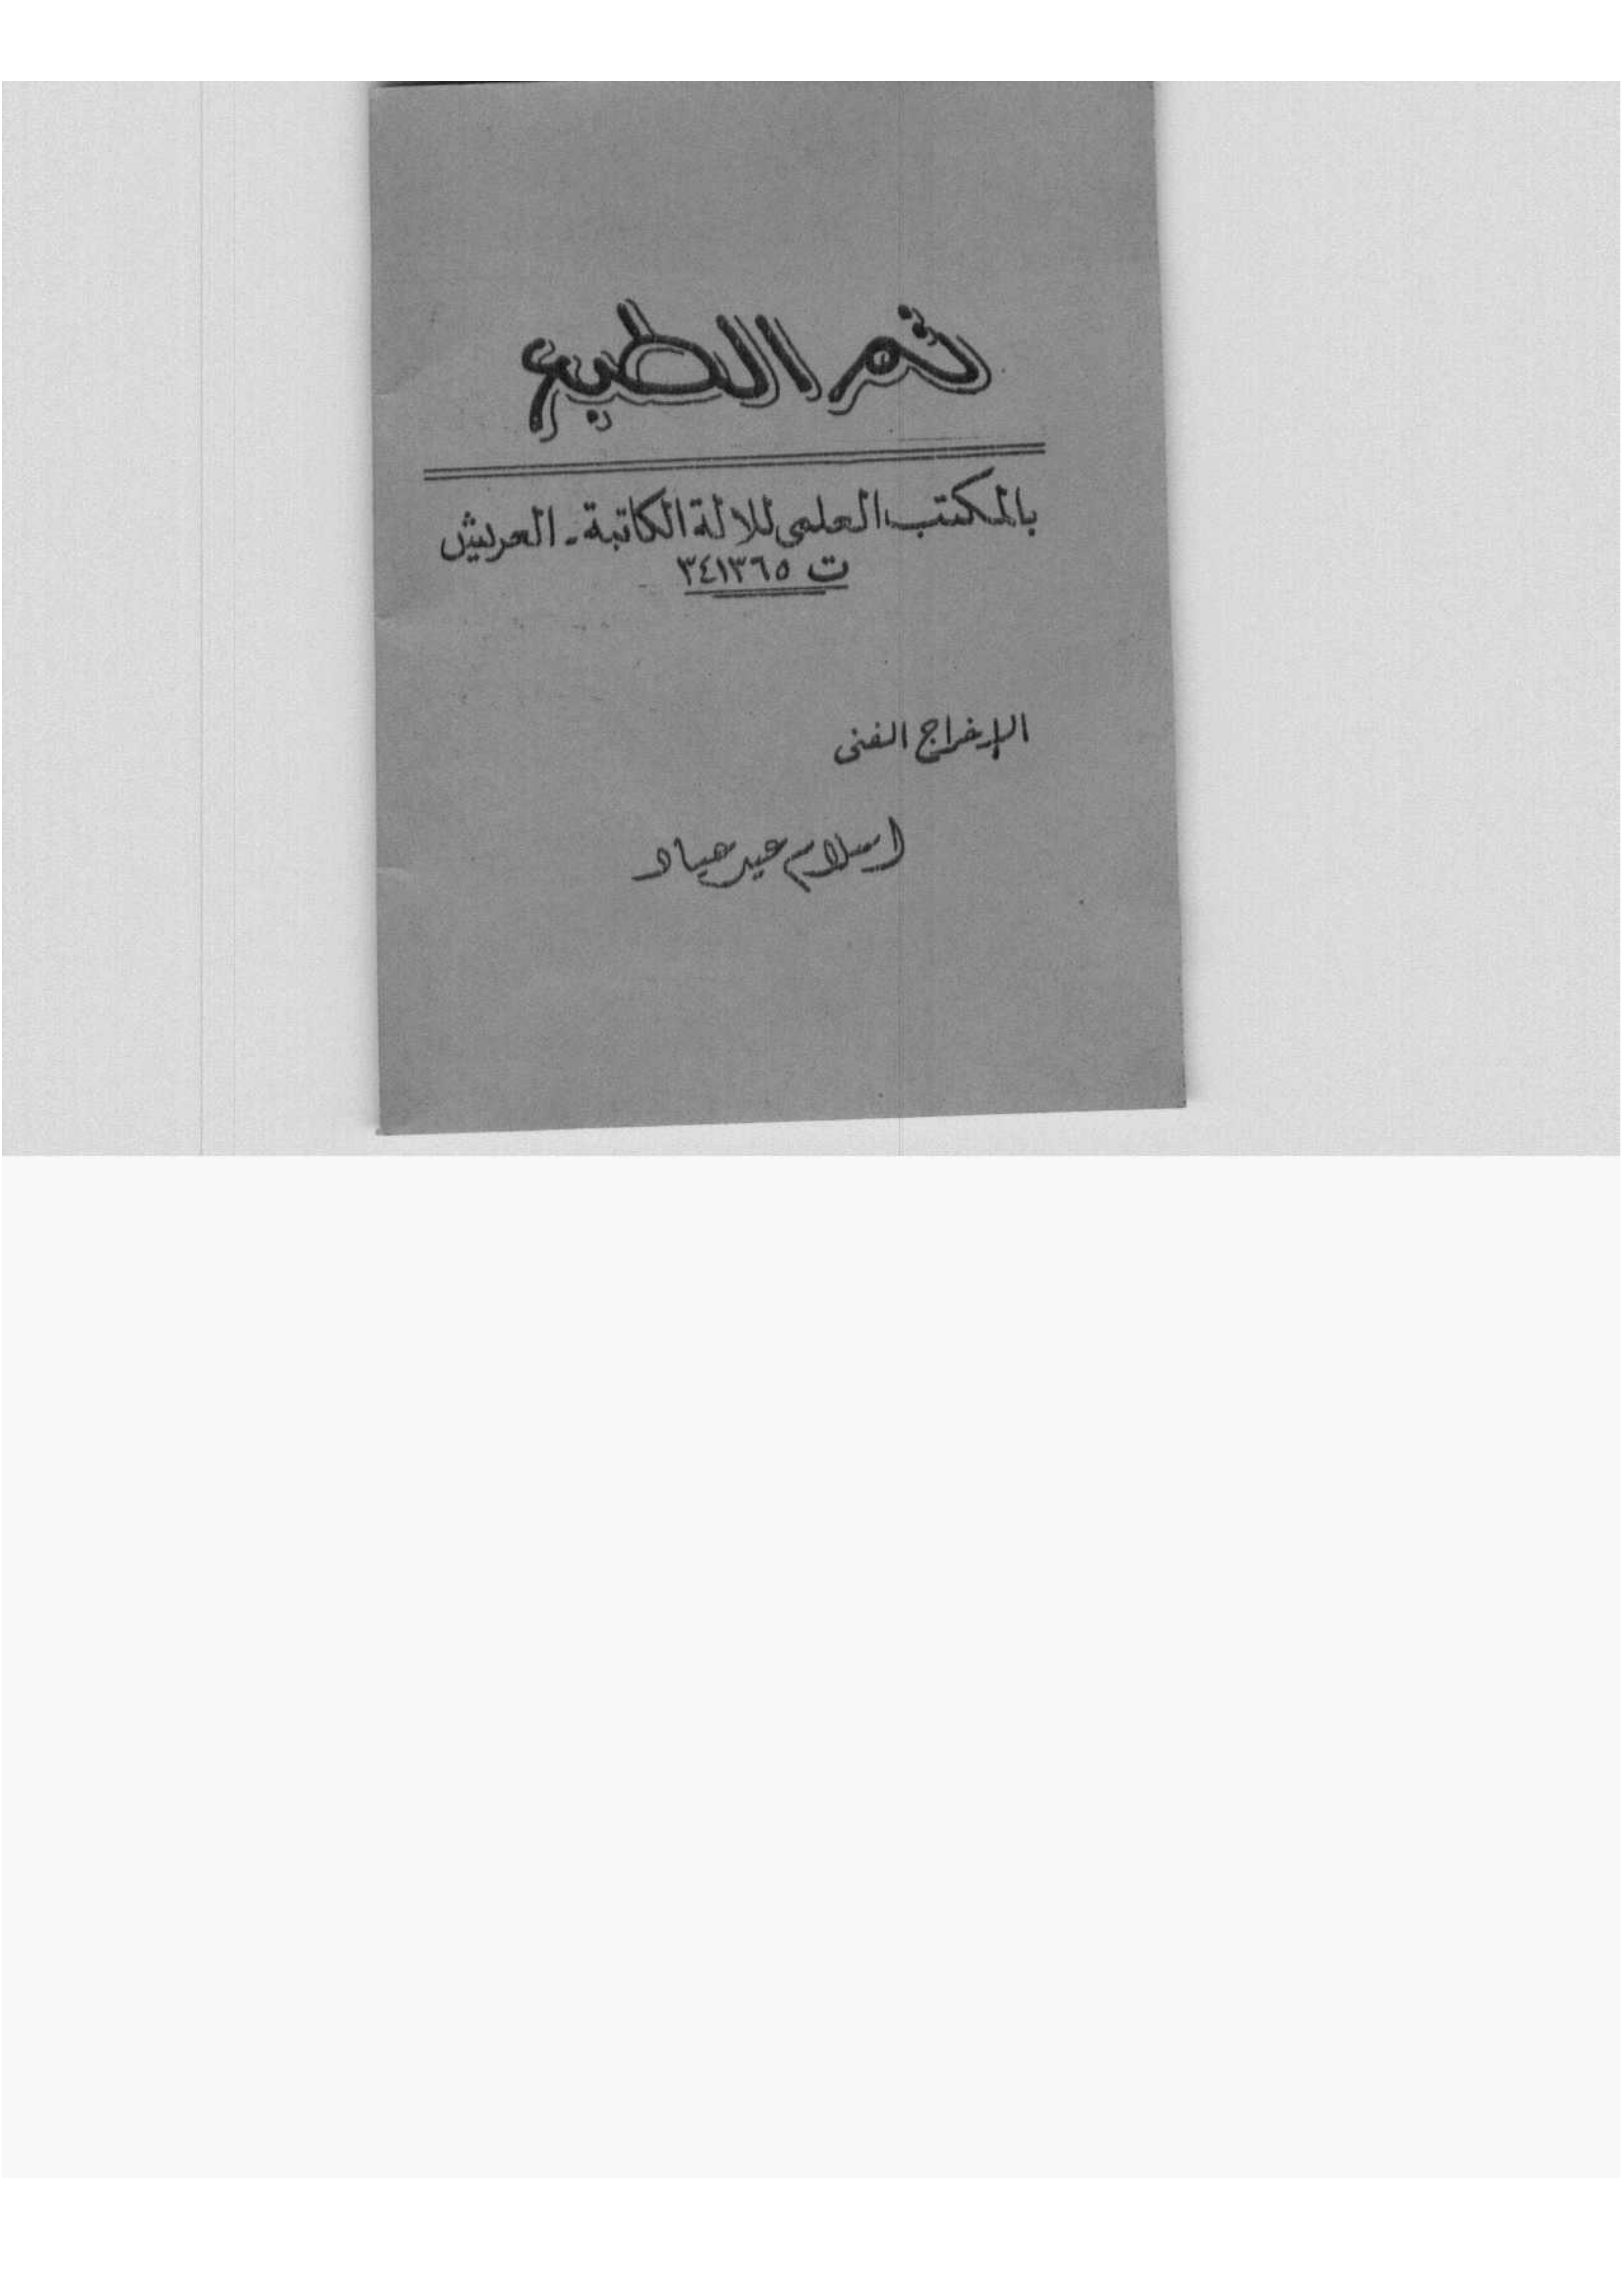 تم الطبع
بالمكتب العلمى للالة الكاتبة - العريش
ت ٣٤١٣٦٥
الإخراج الفنى
اسلام عيد